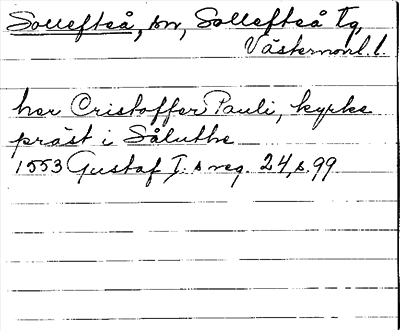 Sollefteå, sn, Sollefteå Tg,
Västernorrl. l.
her Cristoffer Pauli, kyrke
präst i Såluthe
1553 Gustaf I:s reg. 24, s. 99